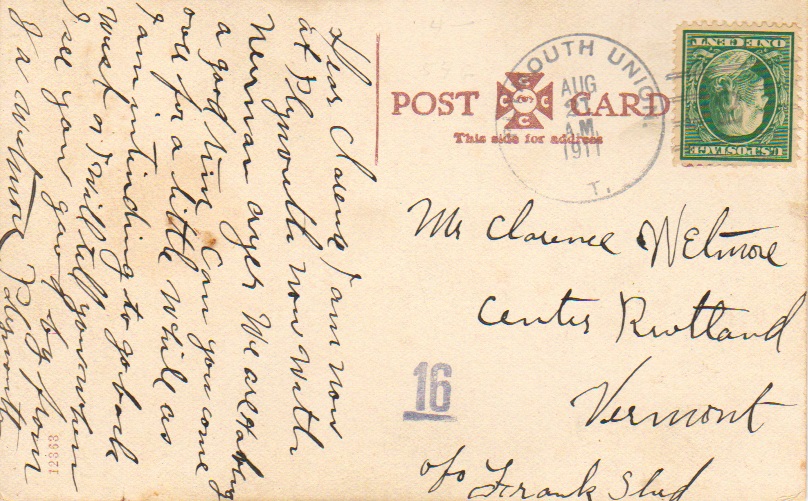 Dear Clarence I am now
at Plymouth now with
Newman ayer We are haveing
a good time Can you come
over for a little while as
I am intinding to go back
West or I will tell you when
I see you good by from
J a Welmore Plymouth
POST CARD
This side for address
SOUTH UNION.
AUG
21
AM
1911
T.
U.S. POSTAGE
ONE CENT
Mr Clarence Welmore
Center Rutland
Vermont
16
c/o Frank
12363